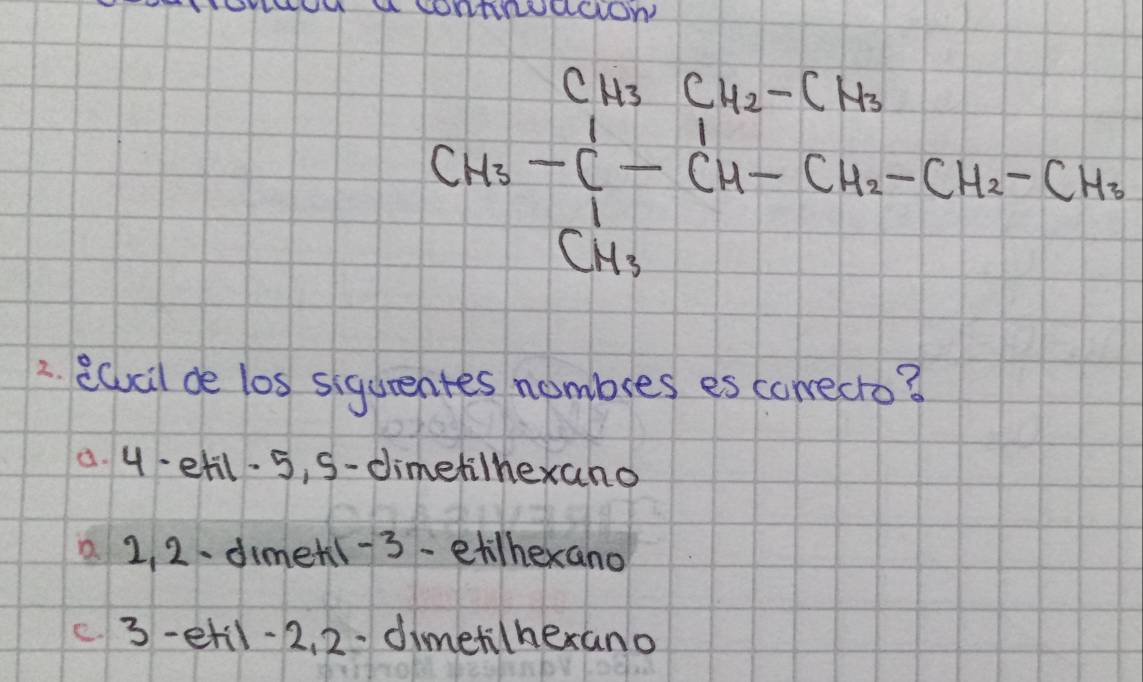 a continuación
CH3 CH2-CH3
CH3-C-CH-CH2-CH2-CH3
CH3
2. ¿Cuál de los siguientes nombres es correcto?
a. 4-etil-5,5-dimetilhexano
b. 2,2-dimetil-3-etilhexano
c. 3-etil-2,2-dimetilhexano